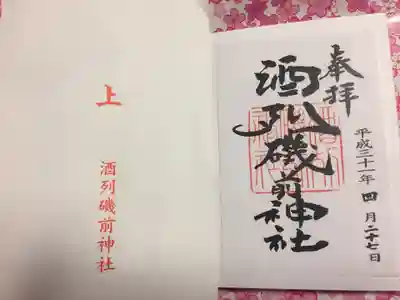 奉拝
酒列磯前神社
平成三十一年四月二十七日
上
酒列磯前神社